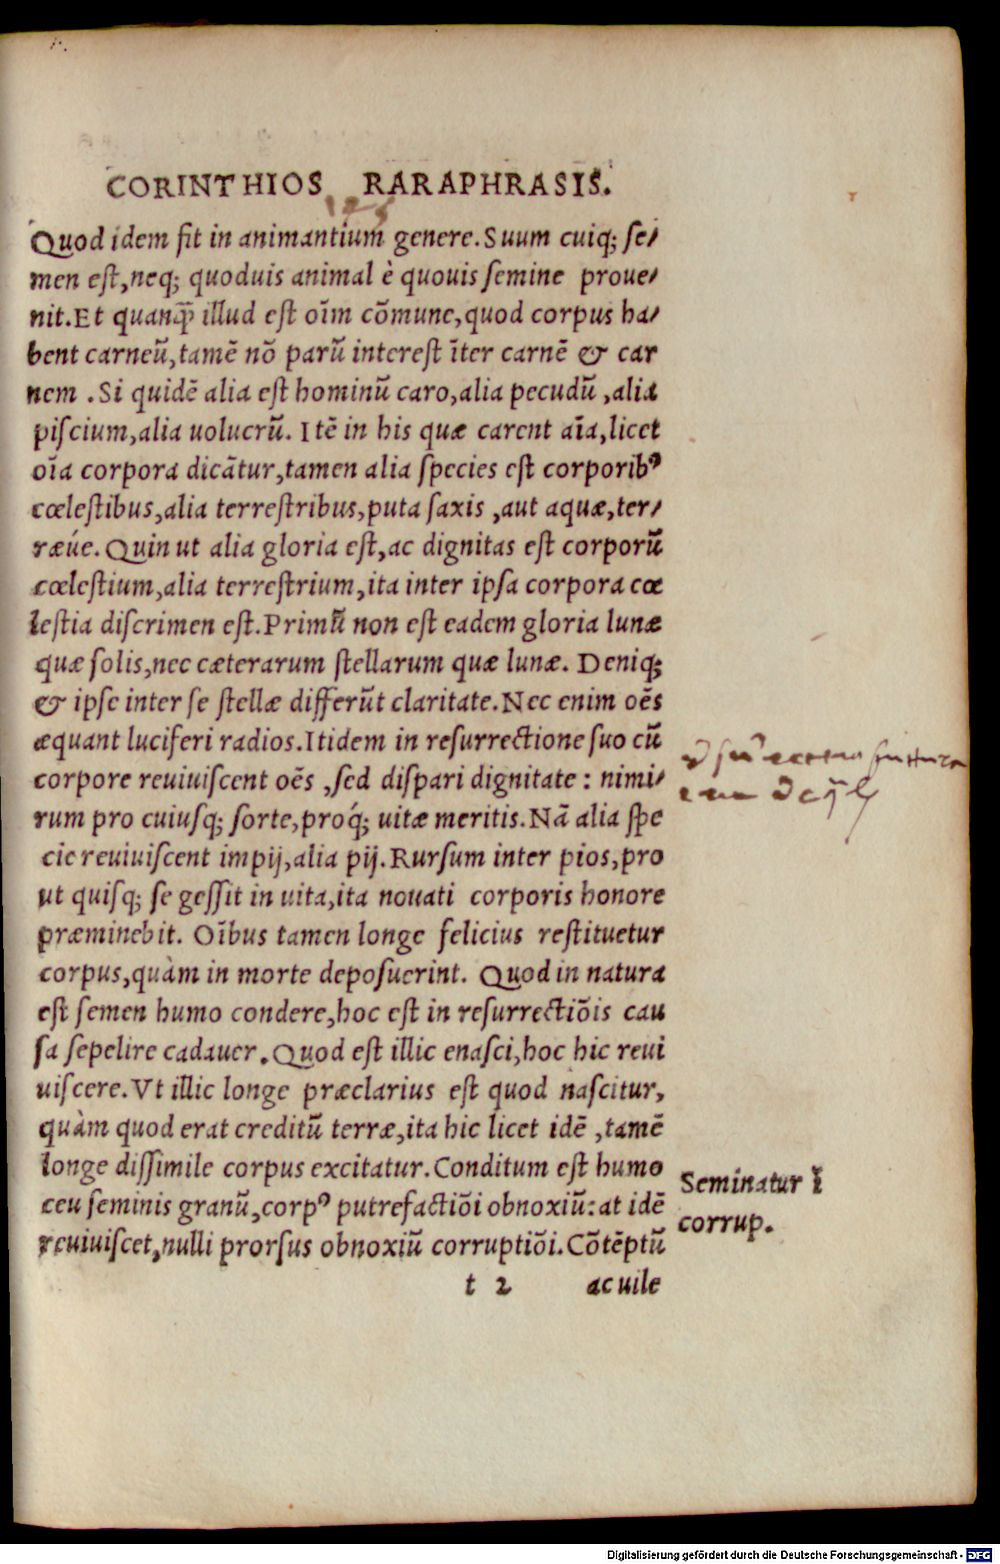 CORINTHIOS RARAPHRASIS.
Quod idem fit in animantium genere. Suum cuiq; se/
men est, neq; quoduis animal è quouis semine proue/
nit. Et quanq̃ illud est oīm cōmune, quod corpus ha/
bent carneũ, tamē nō parũ interest īter carnē & car
nem . Si quidē alia est hominũ caro, alia pecudũ , alia
piscium, alia uolucrũ. Itē in his quæ carent aīa, licet
oīa corpora dicātur, tamen alia species est corporibꝰ
cœlestibus, alia terrestribus, puta saxis , aut aquæ, ter/
ræúe. Quin ut alia gloria est, ac dignitas est corporũ
cœlestium, alia terrestrium, ita inter ipsa corpora cœ
lestia discrimen est. Primũ non est eadem gloria lunæ
quæ solis, nec cæterarum stellarum quæ lunæ. Deniq;
& ipse inter se stellæ differũt claritate. Nec enim oēs
æquant luciferi radios. Itidem in resurrectione suo cũ
corpore reuiuiscent oēs , sed dispari dignitate : nimi/
rum pro cuiusq; sorte, proq́; uitæ meritis. Nā alia spe
cie reuiuiscent impij, alia pij. Rursum inter pios, pro
ut quisq; se gessit in uita, ita nouati corporis honore
præminebit. Oībus tamen longe felicius restituetur
corpus, quàm in morte deposuerint. Quod in natura
est semen humo condere, hoc est in resurrectiōis cau
sa sepelire cadauer. Quod est illic enasci, hoc hic reui
uiscere. Vt illic longe præclarius est quod nascitur,
quàm quod erat creditũ terræ, ita hic licet idē , tamē
longe dissimile corpus excitatur. Conditum est humo
ceu seminis granũ, corpꝰ putrefactiōi obnoxiũ: at idē
reuiuiscet, nulli prorsus obnoxiũ corruptiōi. Cōtēptũ
Seminatur ĩ
corrup.
t 2 ac uile
Digitalisierung gefördert durch die Deutsche Forschungsgemeinschaft - DFG